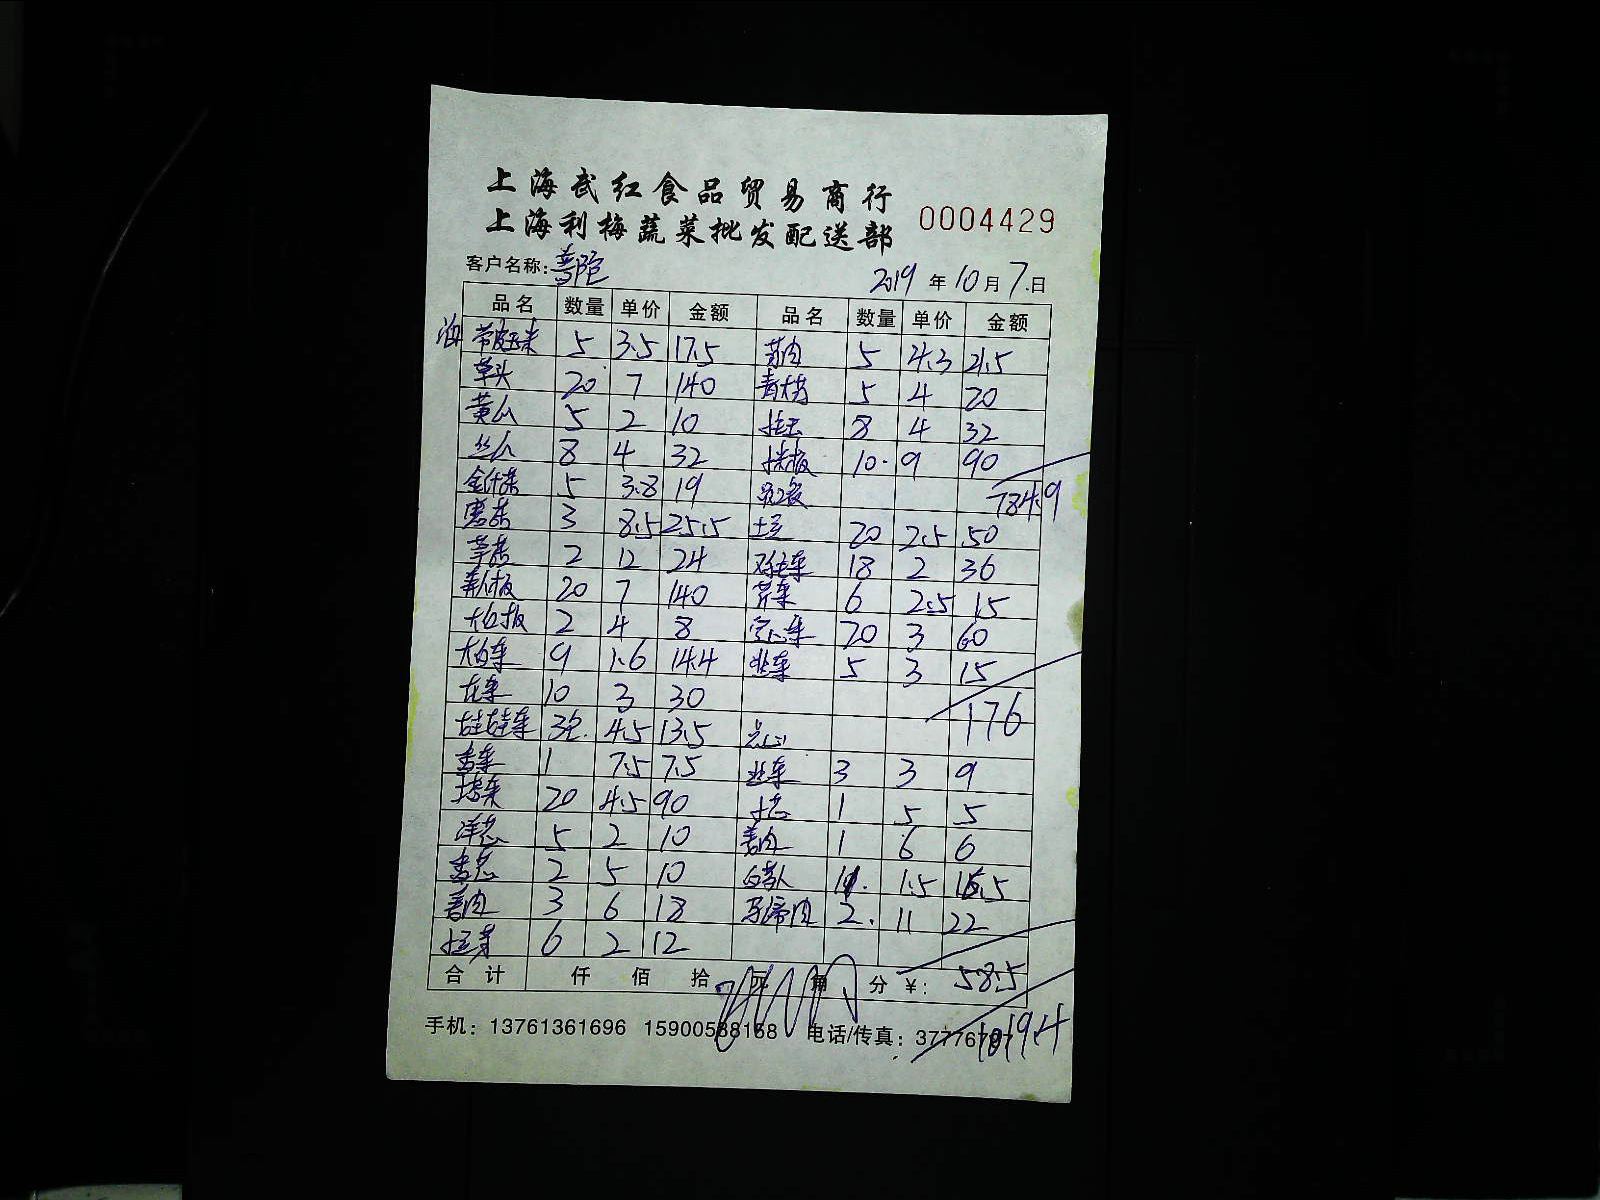 上海武红食品贸易商行
上海利梅蔬菜批发配送部 0004429
客户名称：普陀 2019 年 10 月 7 日
品名 数量 单价 金额 品名 数量 单价 金额
5 3.5 17.5 5 4.3 21.5
草头 20 7 140 5 4 20
黄瓜 5 2 10 8 4 32
丝瓜 8 4 32 10 9 90
5 3.8 19
784.9
3 8.5 25.5 土豆 20 2.5 50
2 12 24 18 2 36
20 7 140 芹菜 6 2.5 15
2 4 8 空心菜 20 3 60
大白菜 9 1.6 14.4 韭菜 5 3 15
花菜 10 3 30
176
娃娃菜 3包 4.5 13.5 点心
香菜 1 7.5 7.5 韭菜 3 3 9
20 4.5 90 1 5 5
洋葱 5 2 10 姜肉 1 6 6
香葱 2 5 10 11 1.5 16.5
姜肉 3 6 18 马蹄肉 2 11 22
6 2 12
合计 仟 佰 拾 元 角 分 ¥： 58.5
手机：13761361696 15900588168 电话/传真：
1019.4